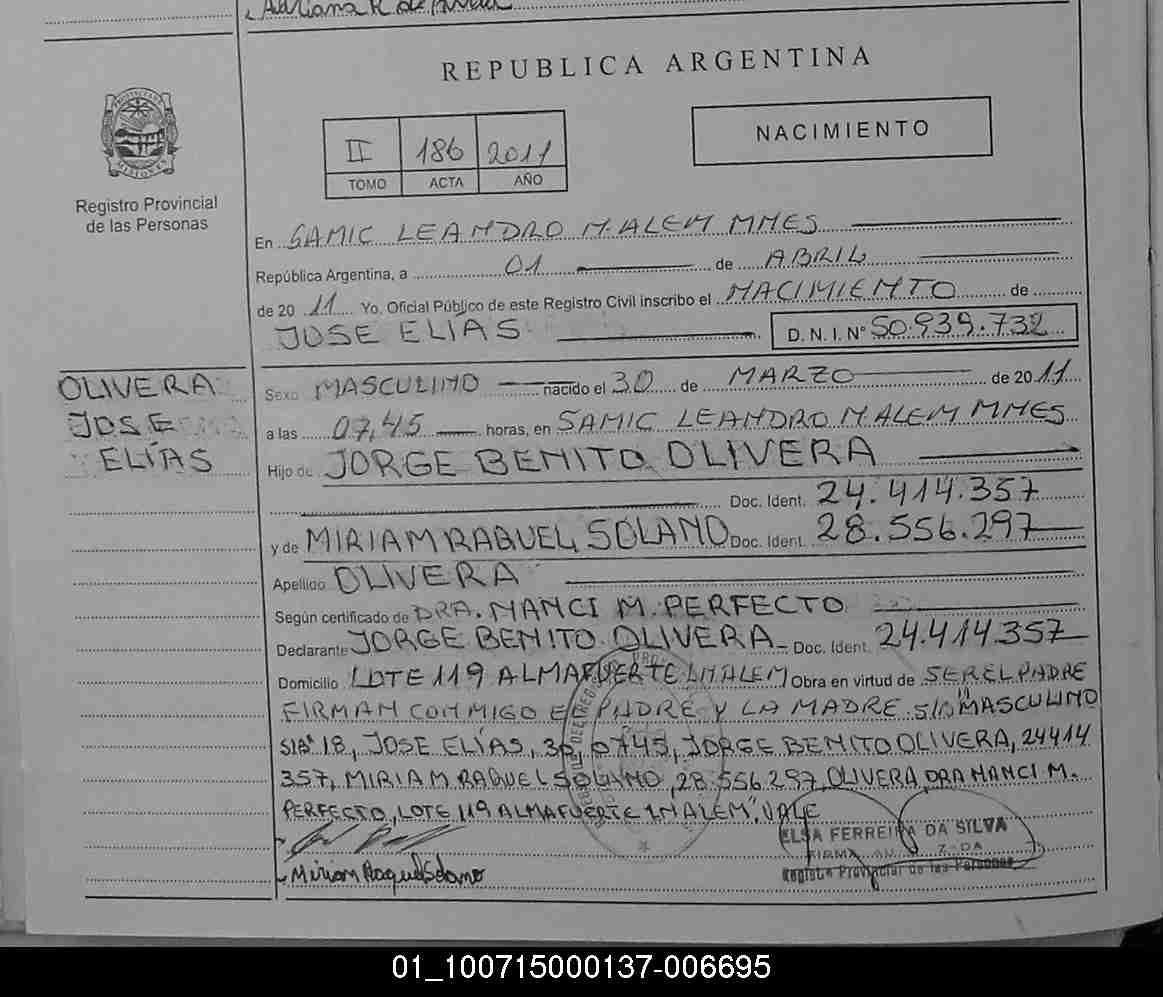 Adriana R de
REPUBLICA ARGENTINA
NACIMIENTO
II 186 2011
TOMO ACTA AÑO
PROVINCIA DE MISIONES
Registro Provincial
de las Personas
En SAMIC LEANDRO N. ALEM MNES
República Argentina, a 01 de ABRIL
de 2011 Yo, Oficial Público de este Registro Civil inscribo el NACIMIENTO de
JOSE ELÍAS D. N. I. N° 50.939.732
OLIVERA
JOSE
ELÍAS
Sexo MASCULINO nacido el 30 de MARZO de 2011
a las 07,45 horas, en SAMIC LEANDRO N. ALEM MNES
Hijo de JORGE BENITO OLIVERA
Doc. Ident. 24.414.357
y de MIRIAM RAQUEL SOLANO Doc. Ident. 28.556.297
Apellido OLIVERA
Según certificado de DRA. NANCI M. PERFECTO
Declarante JORGE BENITO OLIVERA Doc. Ident. 24.414.357
Domicilio LOTE 119 ALMAFUERTE L.N.ALEM Obra en virtud de SER EL PADRE
FIRMAN CONMIGO EL PADRE Y LA MADRE S/R "MASCULINO
S/Bº 18, JOSE ELÍAS, 30, 0745, JORGE BENITO OLIVERA, 24414
357, MIRIAM RAQUEL SOLANO, 28.556.297, OLIVERA, DRA NANCI M.
PERFECTO, LOTE 119 ALMAFUERTE L.N ALEM", VALE
ELSA FERREIRA DA SILVA
FIRMA
Registro Provincial de las Personas
Miriam Raquel Solano
01_100715000137-006695